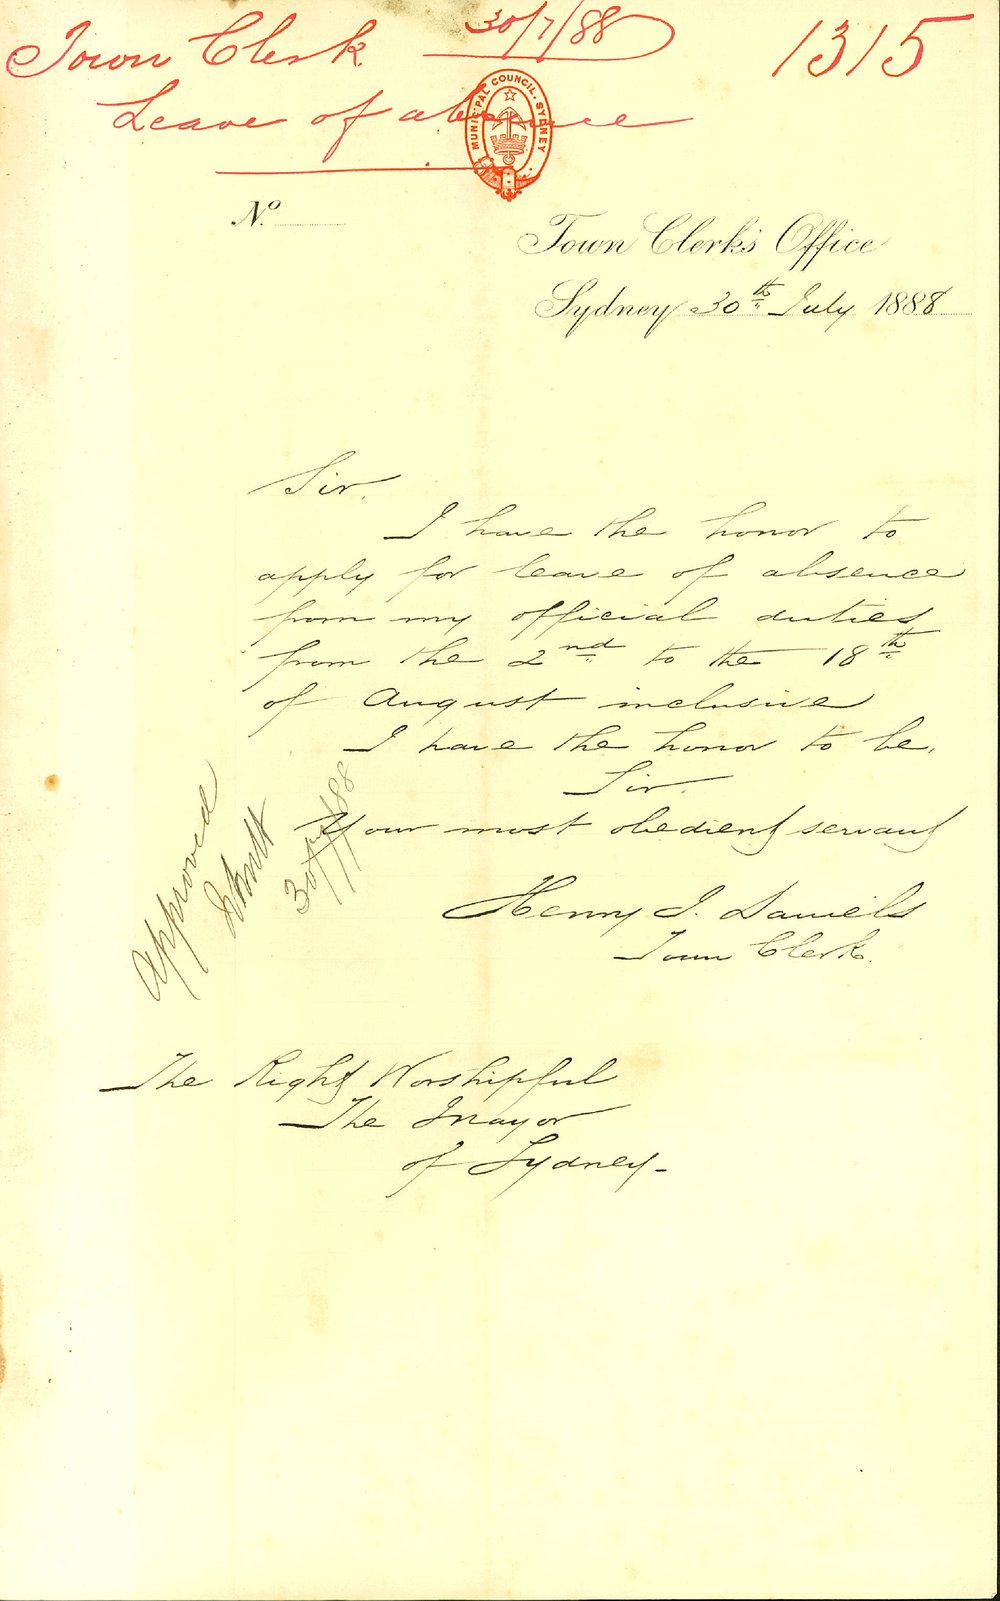 Town Clerk 30/7/88 1315
Leave of absence
MUNICIPAL COUNCIL. SYDNEY
No.
Town Clerk's Office
Sydney 30th July 1888
Sir.
I have the honor to
apply for leave of absence
from my official duties
from the 2nd to the 18th
of August inclusive
I have the honor to be.
Sir.
Your most obedient servant
Henry J. Daniels
Town Clerk.
Approved
30/7/88
The Right Worshipful
The Mayor
of Sydney-